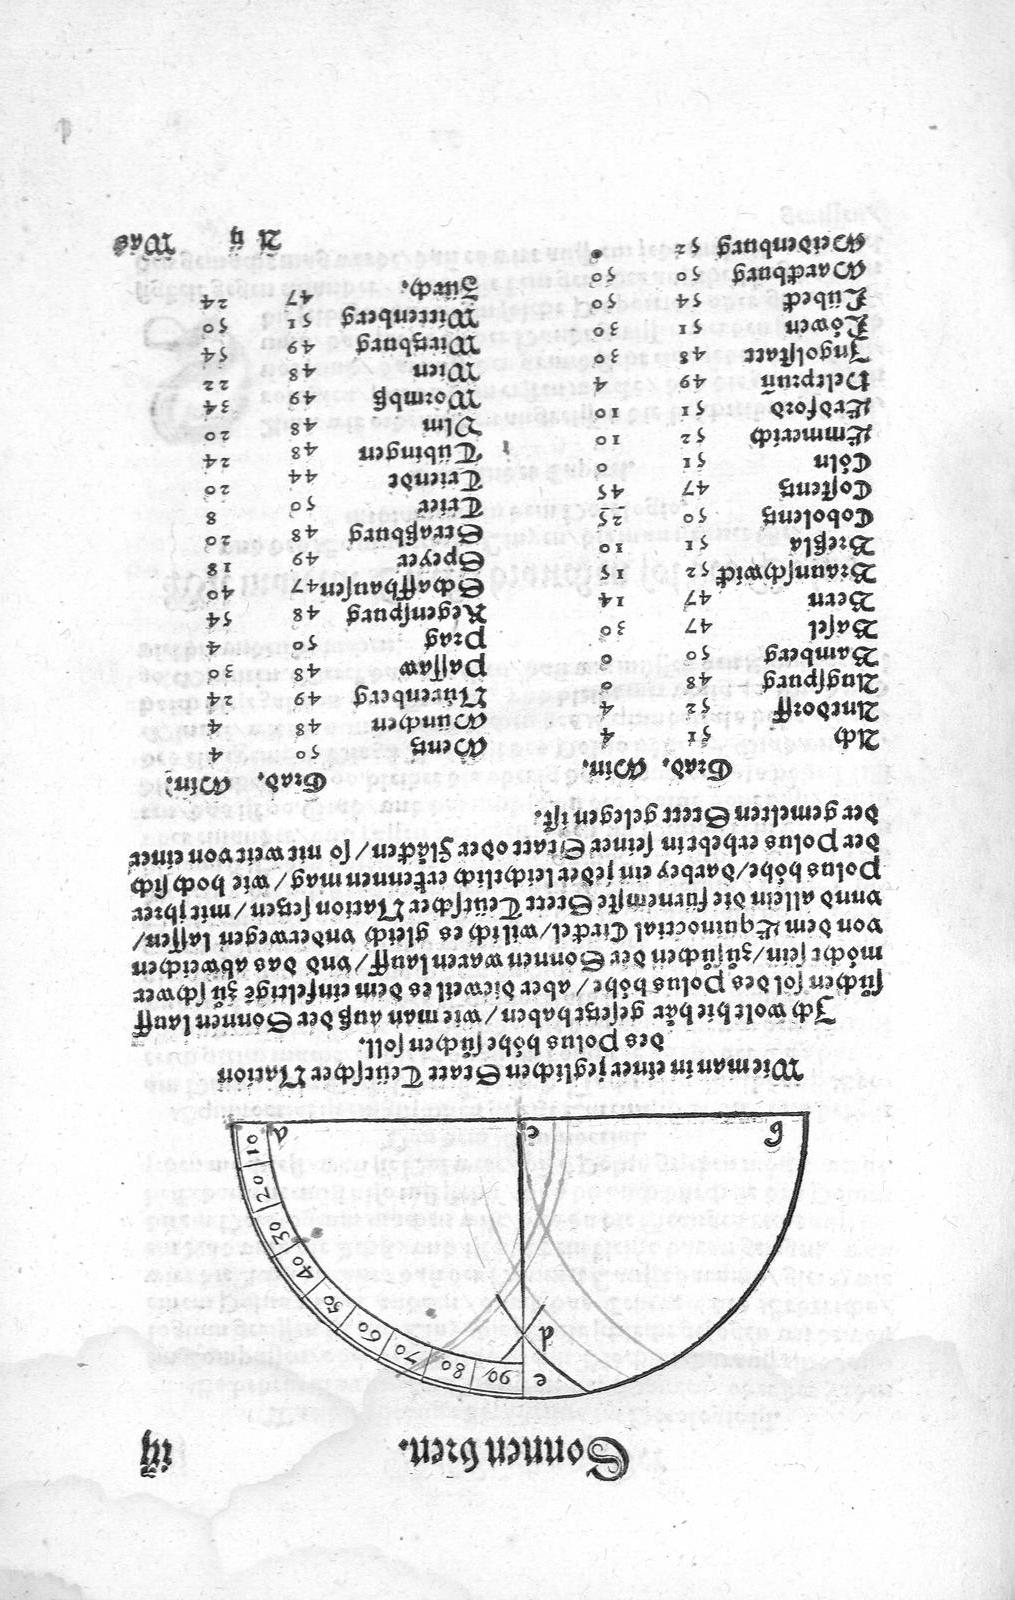 Sonnen vren. iij
e 90 80 70 60 50 40 30 20 10
d
g c a
Wie man in einer jeglichen Statt Teütscher Nation
des Polus höhe sůchen soll.
Ich wole hie här gesetzt haben/ wie man auß der Sonnen lauff
sůchen sol des Polus höhe/ aber dieweil es dem einfeltigē zů schwer
möcht sein/ zůsůchen der Sonnen waren lauff/ vnd das abweichen
von dem Equinoctial Circkel/ wil ich es gleich vnderwegen lassen/
vnnd allein die fürnemste Stett Teütscher Nation setzen/ mit ihrer
Polus höhe/ darbey ein jeder leichtlich erkennen mag/ wie hoch sich
der Polus erhebt in seiner Statt oder Fläcken/ so nit weit von einer
der gemelten Stett gelegen ist.
Grad. Min. Grad. Min.
Ach 51 4 Mentz 50 4
Antdorff 52 4 München 48 4
Augspurg 48 0 Nürenberg 49 24
Bamberg 50 0 Passaw 48 30
Basel 47 30 Prag 50 4
Bern 47 14 Regenspurg 48 54
Braunschwick 52 15 Schaffhausen 47 40
Breßla 51 10 Speyer 49 18
Cobolentz 50 25 Straßburg 48 20
Costentz 47 45 Trier 50 8
Cöln 51 0 Triendt 44 20
Emmerich 52 10 Tübingen 48 24
Erdford 51 10 Vlm 48 20
Heleprun̄ 49 4 Wormbß 49 34
Ingolstatt 48 30 Wien 48 22
Löwen 51 30 Wirtzburg 49 54
Lübeck 54 50 Wittenberg 51 50
Marckburg 50 50 Zürch. 47 24
Meidenburg 52
A ij Was